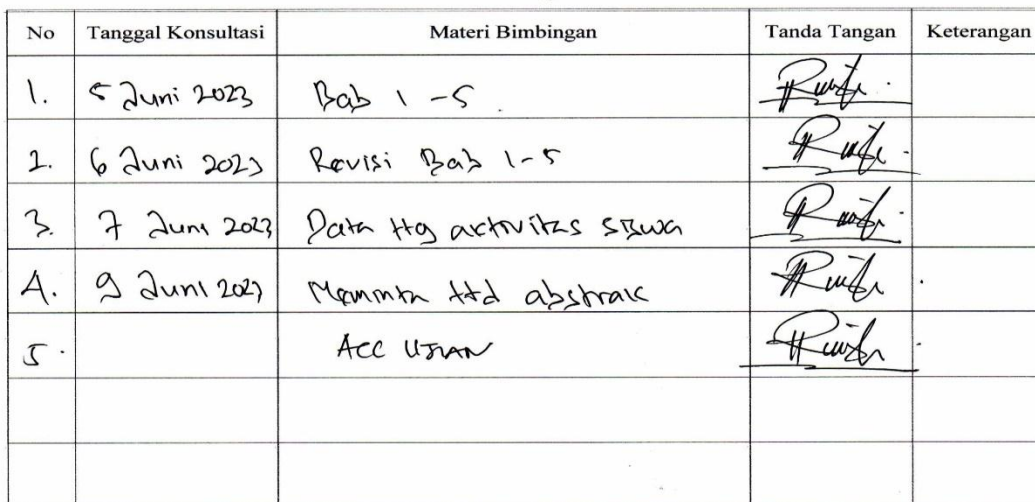 No Tanggal Konsultasi Materi Bimbingan Tanda Tangan Keterangan
1. 5 Juni 2023 Bab 1-5
2. 6 Juni 2023 Revisi Bab 1-5
3. 7 Juni 2023 Data ttg aktivitas siswa
4. 9 Juni 2023 Meminta ttd abstrak
5. ACC UJIAN